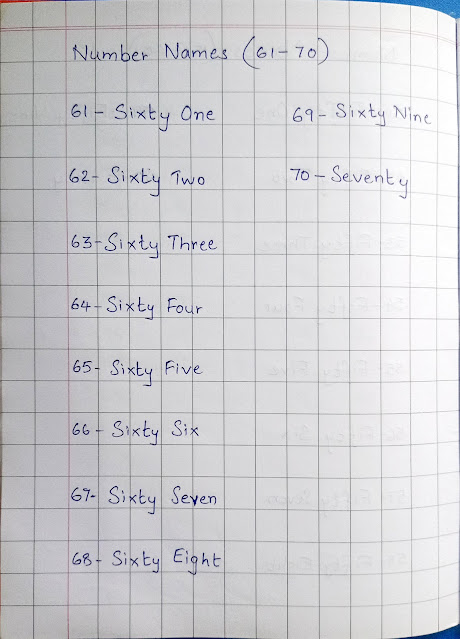 Number Names (61-70)
61 - Sixty One
62- Sixty Two
63-Sixty Three
64- Sixty Four
65- Sixty Five
66 - Sixty Six
67- Sixty Seven
68- Sixty Eight
69- Sixty Nine
70 - Seventy